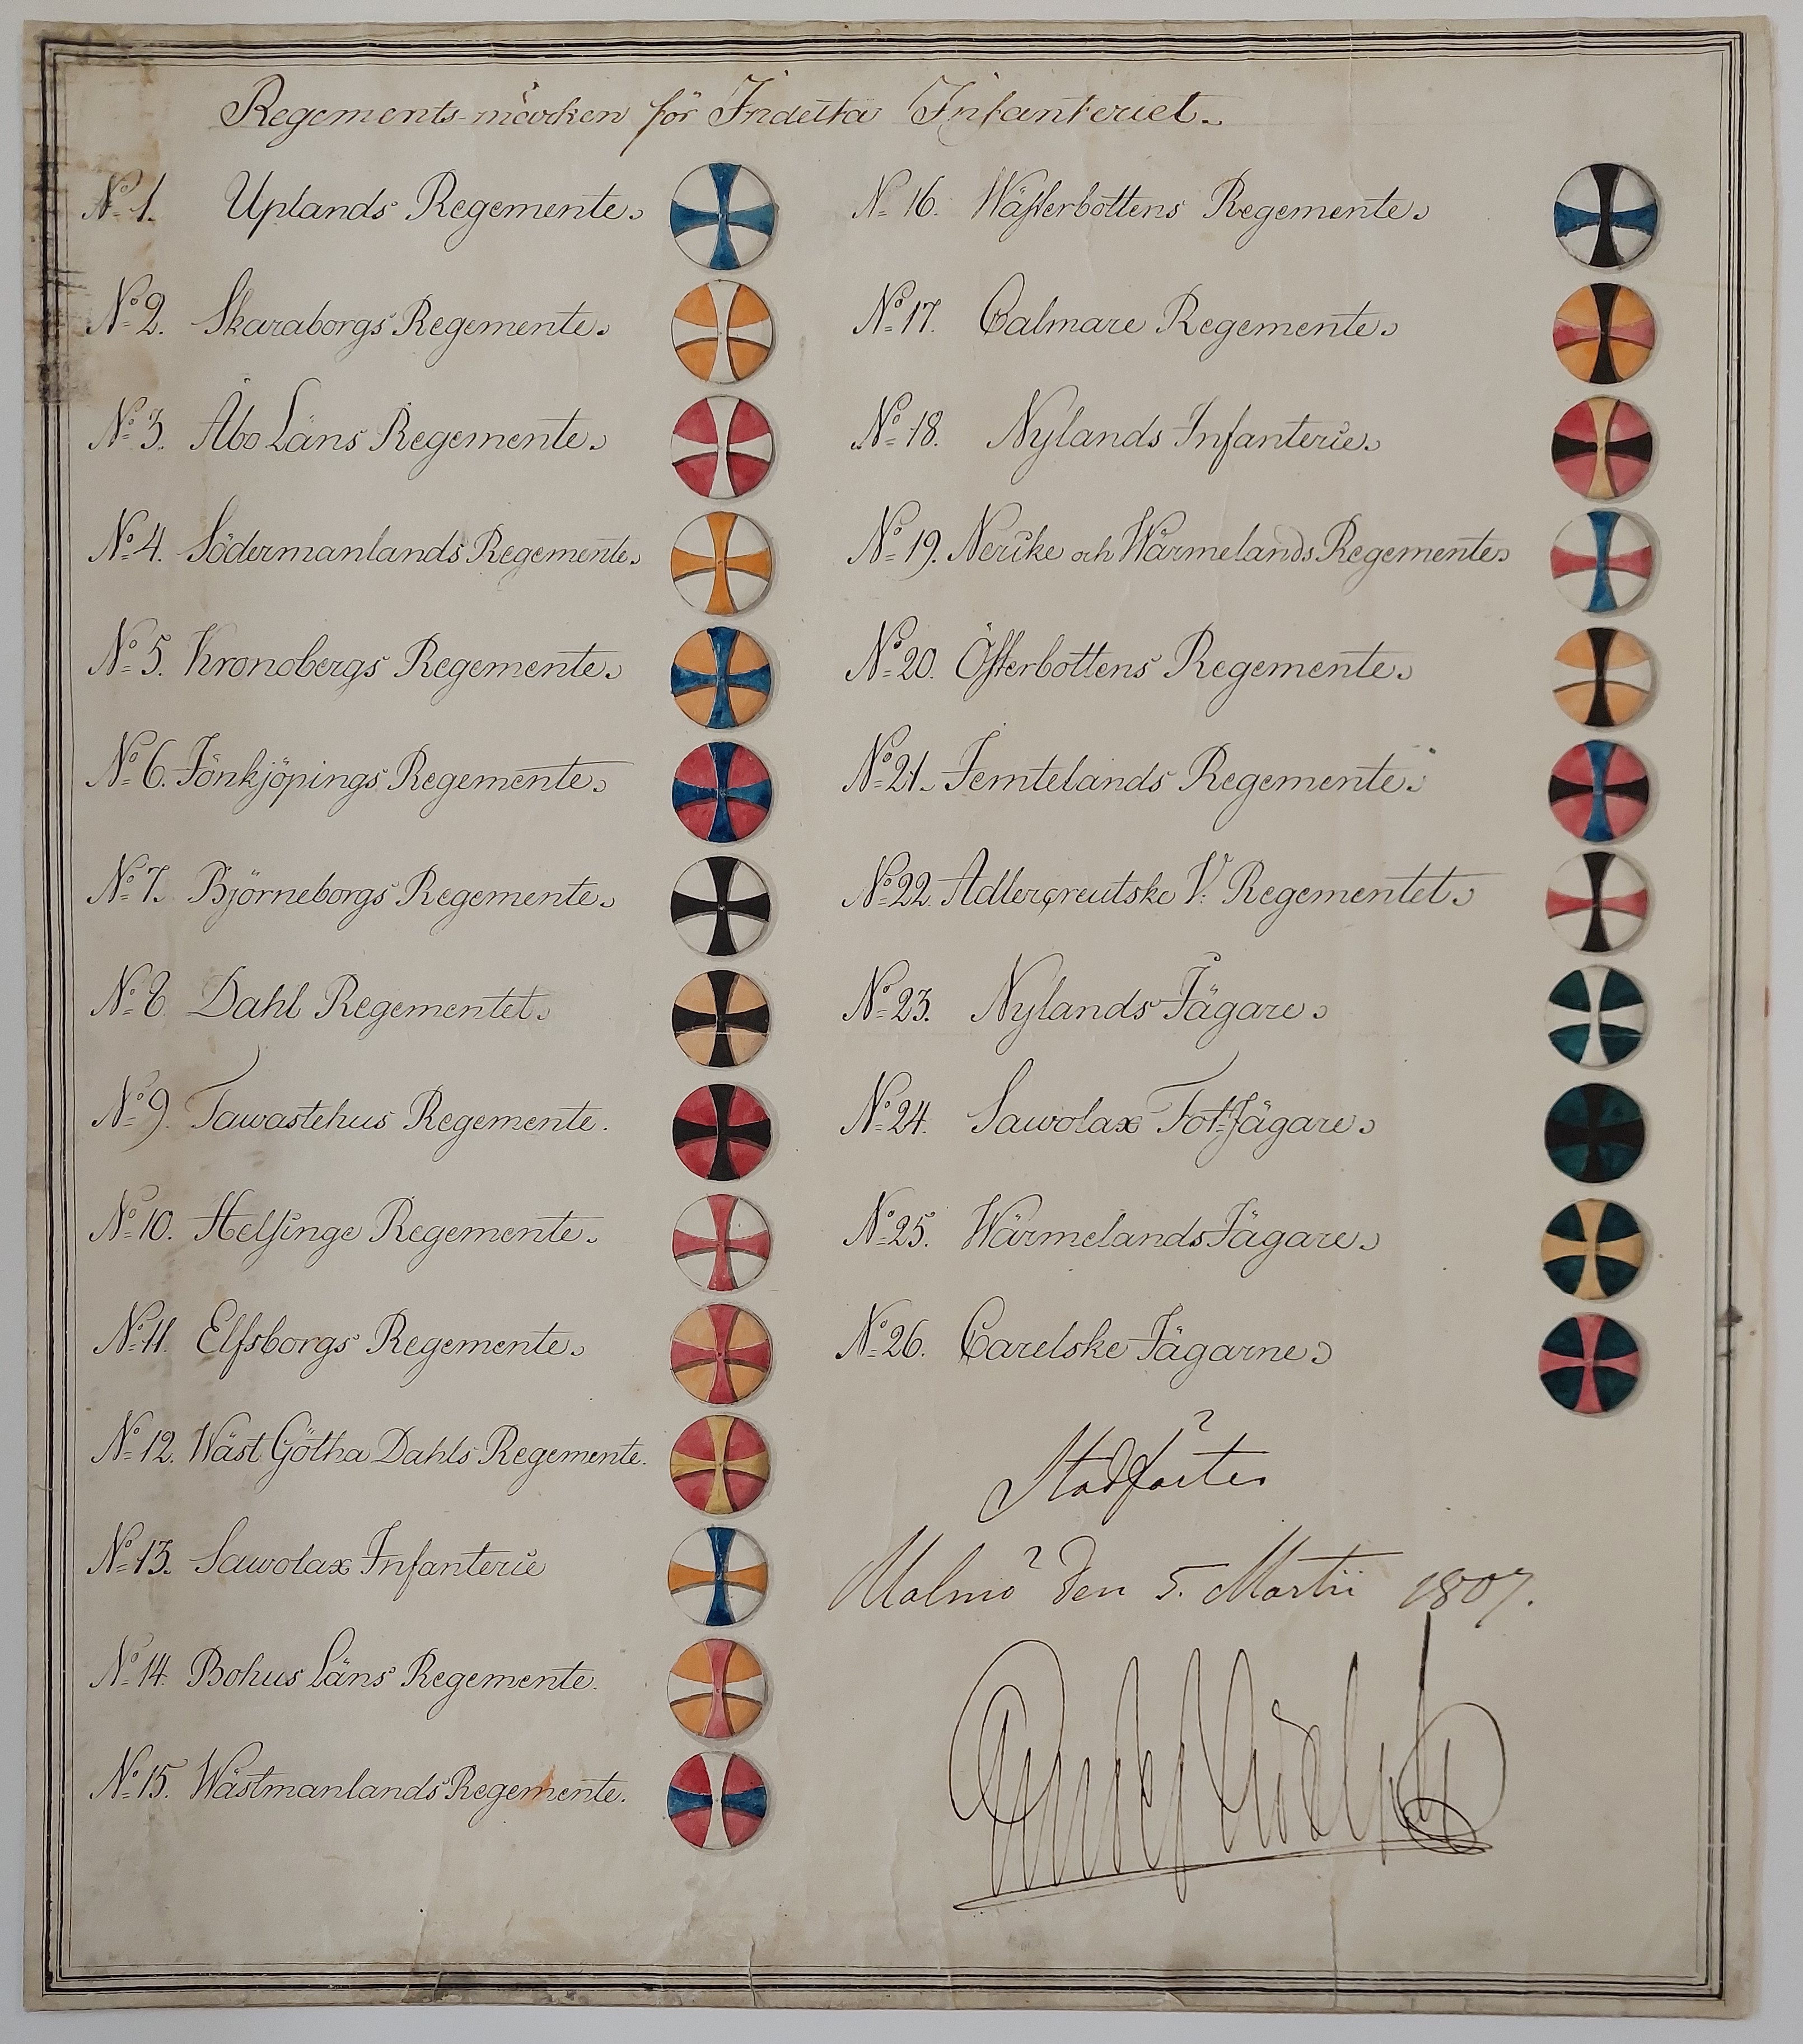 Regements-märken för Indelta Infanteriet.
No 1. Uplands Regemente.
No 2. Skaraborgs Regemente.
No 3. Åbo Läns Regemente.
No 4. Södermanlands Regemente.
No 5. Kronobergs Regemente.
No 6. Jönkjöpings Regemente.
No 7. Björneborgs Regemente.
No 8. Dahl Regementet.
No 9. Tawastehus Regemente.
No 10. Helsinge Regemente.
No 11. Elfsborgs Regemente.
No 12. Wäst Götha Dahls Regemente.
No 13. Sawolax Infanterie
No 14. Bohus Läns Regemente.
No 15. Wästmanlands Regemente.
No 16. Wästerbottens Regemente.
No 17. Calmare Regemente.
No 18. Nylands Infanterie.
No 19. Nerike och Wärmelands Regemente.
No 20. Österbottens Regemente.
No 21. Jemtelands Regemente.
No 22. Adlercreutske V: Regementet.
No 23. Nylands Jägare.
No 24. Sawolax Fot-Jägare.
No 25. Wärmelands Jägare.
No 26. Carelske Jägarne.
Stadfästes
Malmö den 5. Martii 1807.
Gustaf Adolph